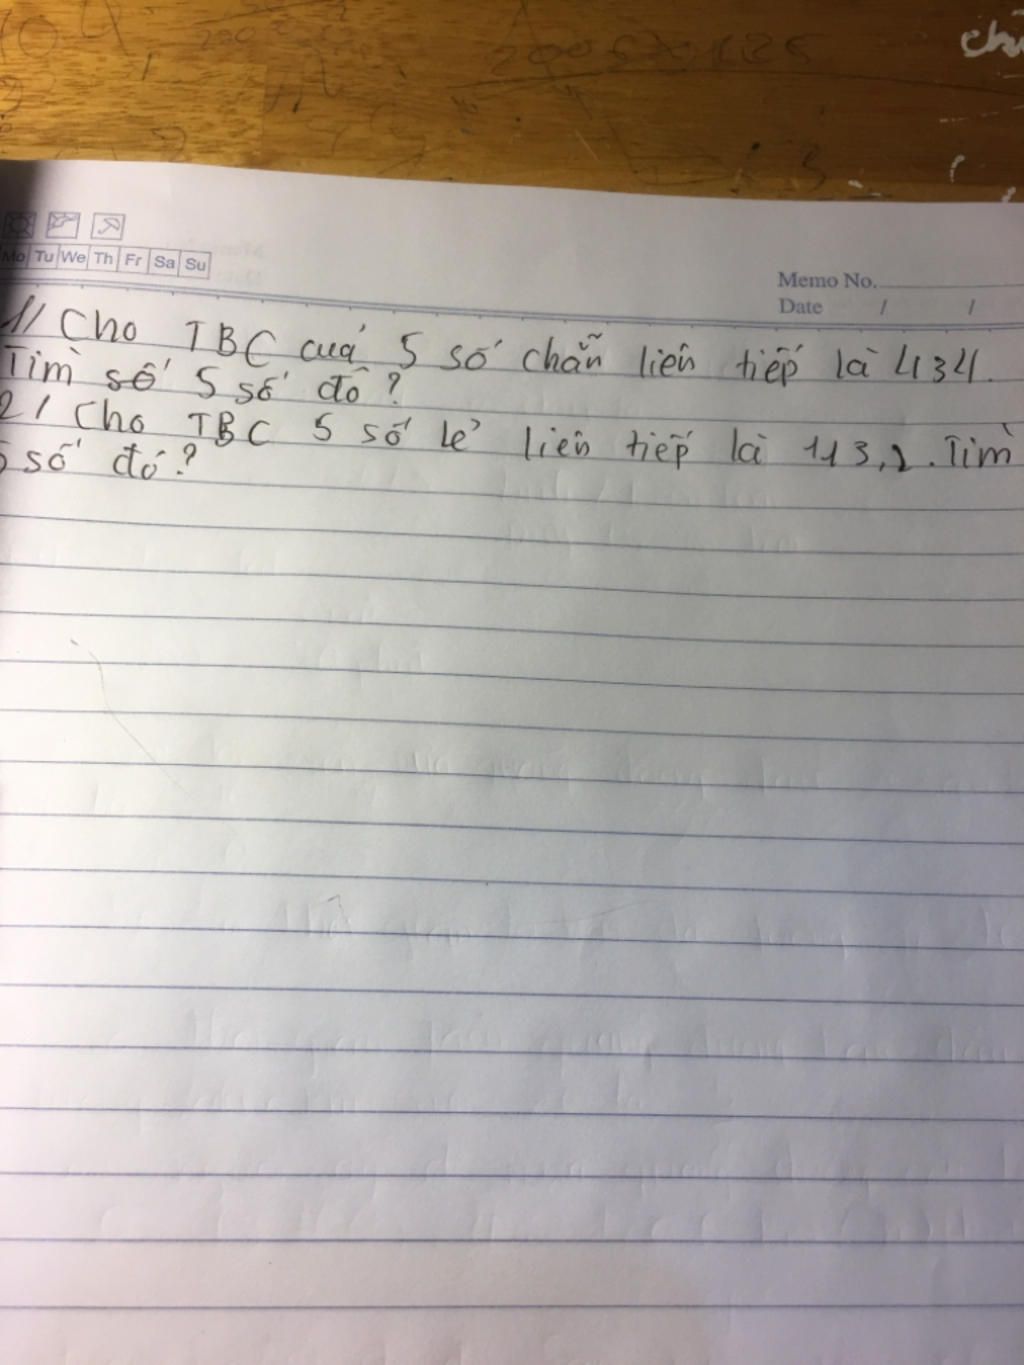 Mo Tu We Th Fr Sa Su
Memo No.
Date / /
1// Cho TBC cuả 5 số chẵn liên tiếp là 434.
Tìm số 5 số đó?
2/ Cho TBC 5 số lẻ liên tiếp là 113,2. Tìm
5 số đó?